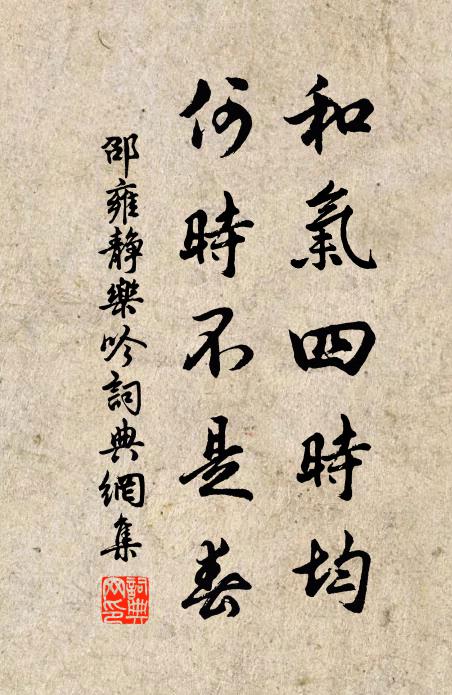 和氣四時均
何時不是春
邵雍靜樂吟詞典網集
詞典
網印